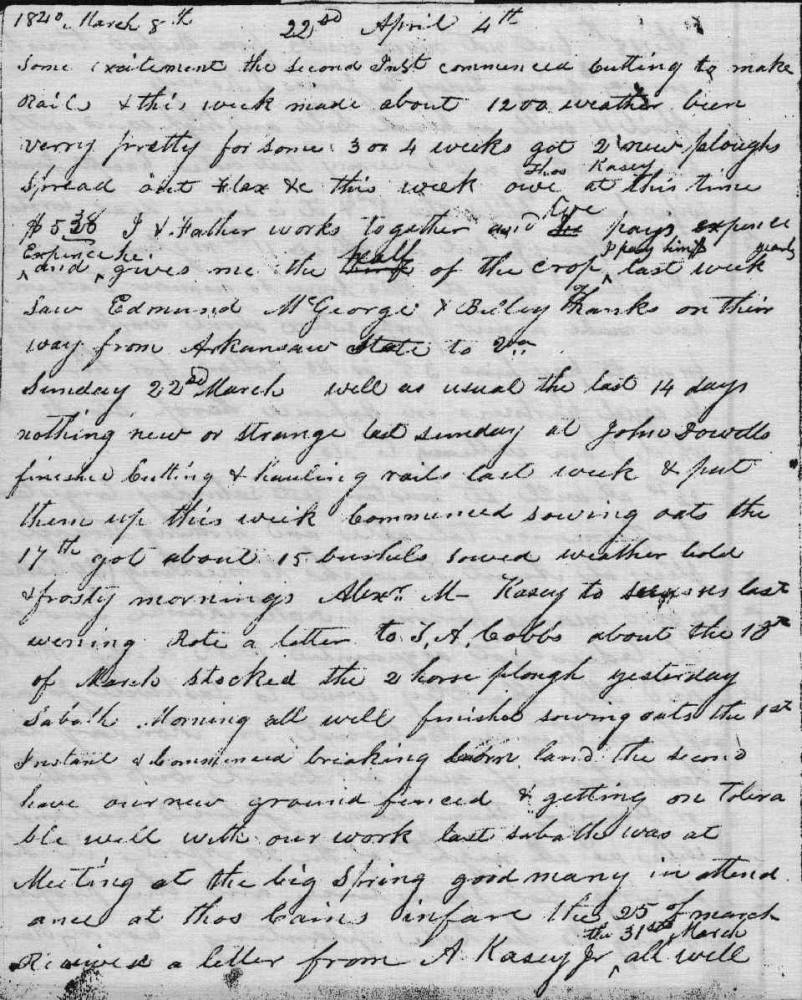 1840, March 8th 22nd April 4th
Some excitement the second Inst commenced Cutting to make
Rails & this week made about 1200 weather been
verry pretty for some 3 or 4 weeks got 2 new ploughs
Thos Kasey
Spread out Flax &c this week owe at this time
$5 38 I & Father works together and we pays expence
Expence he half I pay him yearly
and gives me the half of the crop last week
Saw Edmund McGeorge & Shanks on their
way from Arkansaw State to Va
Sunday 22nd March well as usual the last 14 days
nothing new or strange last sunday at John Dowells
finished Cutting & hauling rails last week & put
them up this week Commenced sowing oats the
17th got about 15 bushels sowed weather Cold
& frosty mornings Alexr. M- Kasey to see us last
evening Rote a letter to T. A. Cobbs about the 18th
of March Stocked the 2 horse plough yesterday
Sabath Morning all well finished sowing oats the 1st
Instant & Commenced breaking Corn land the second
have our new ground fenced & getting on Tolera
ble well with our work last sabath was at
Meeting at the big Spring good many in attend
ance at thos Cains infare the 25 of march
the 31st March
Received a letter from A Kasey Jr all well